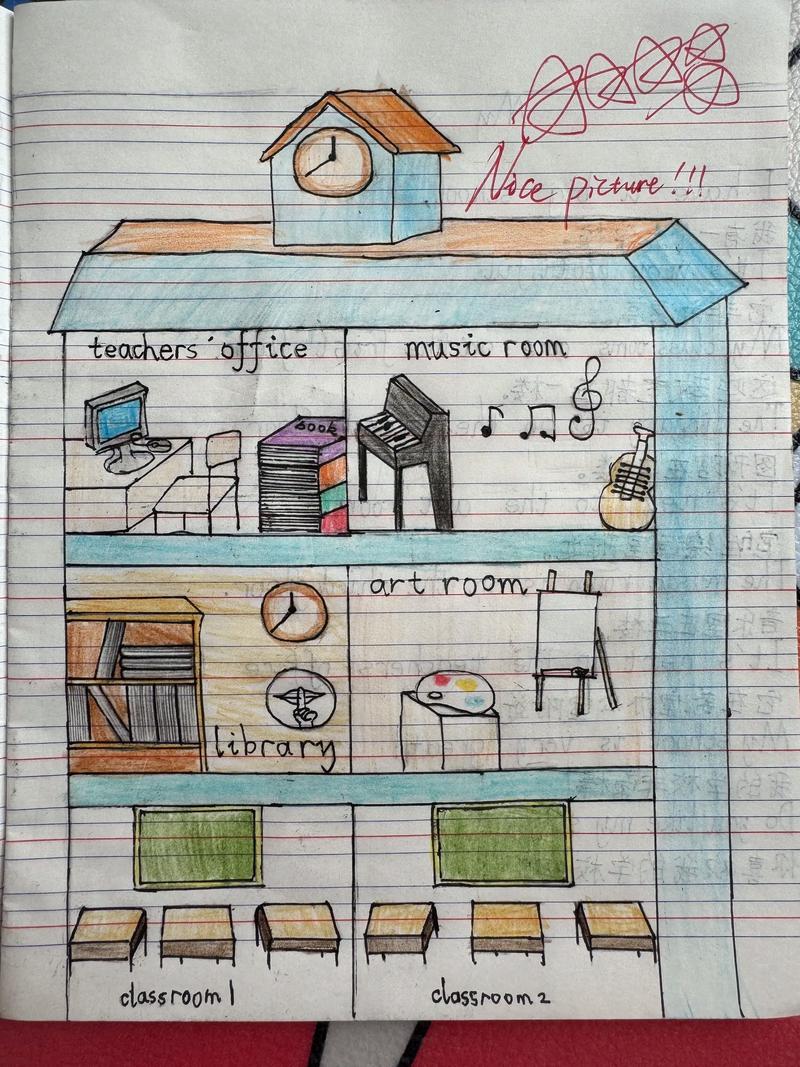 Nice picture!!!
teachers' office
music room
book
art room
library
classroom 1
classroom 2